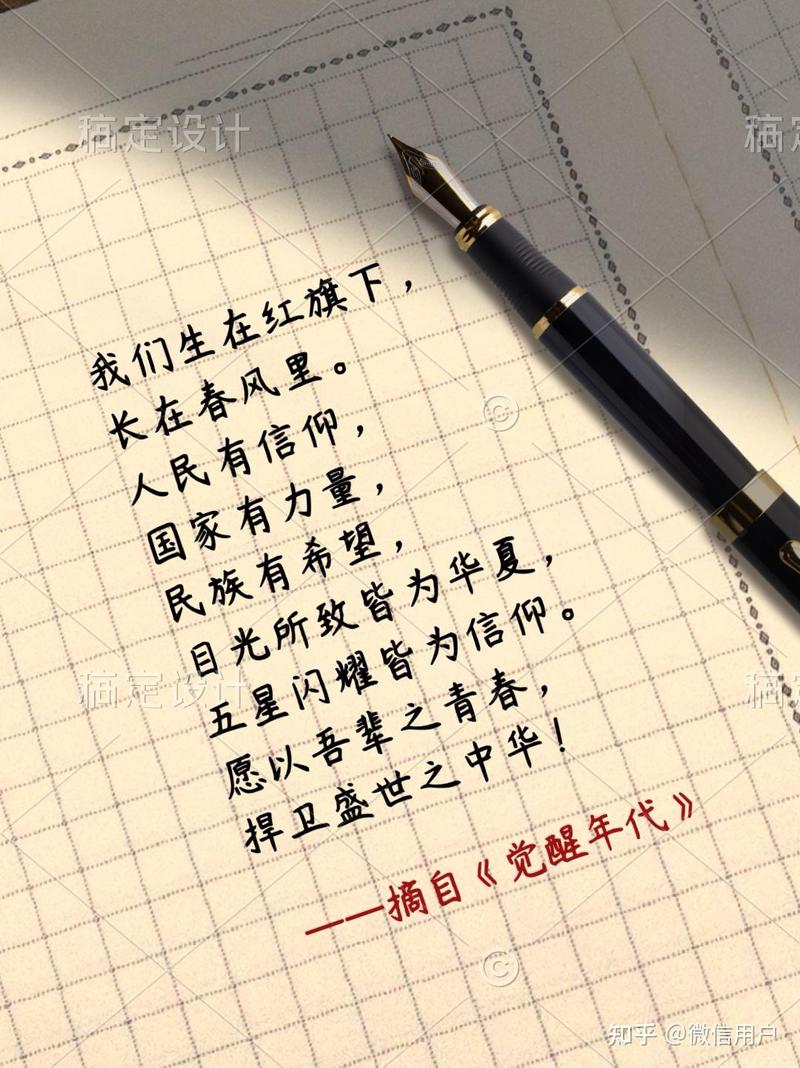 稿定设计
稿定
我们生在红旗下，
长在春风里。
人民有信仰，
国家有力量，
民族有希望，
目光所致皆为华夏，
五星闪耀皆为信仰。
愿以吾辈之青春，
捍卫盛世之中华！
稿定设计
稿定
——摘自《觉醒年代》
知乎 @微信用户